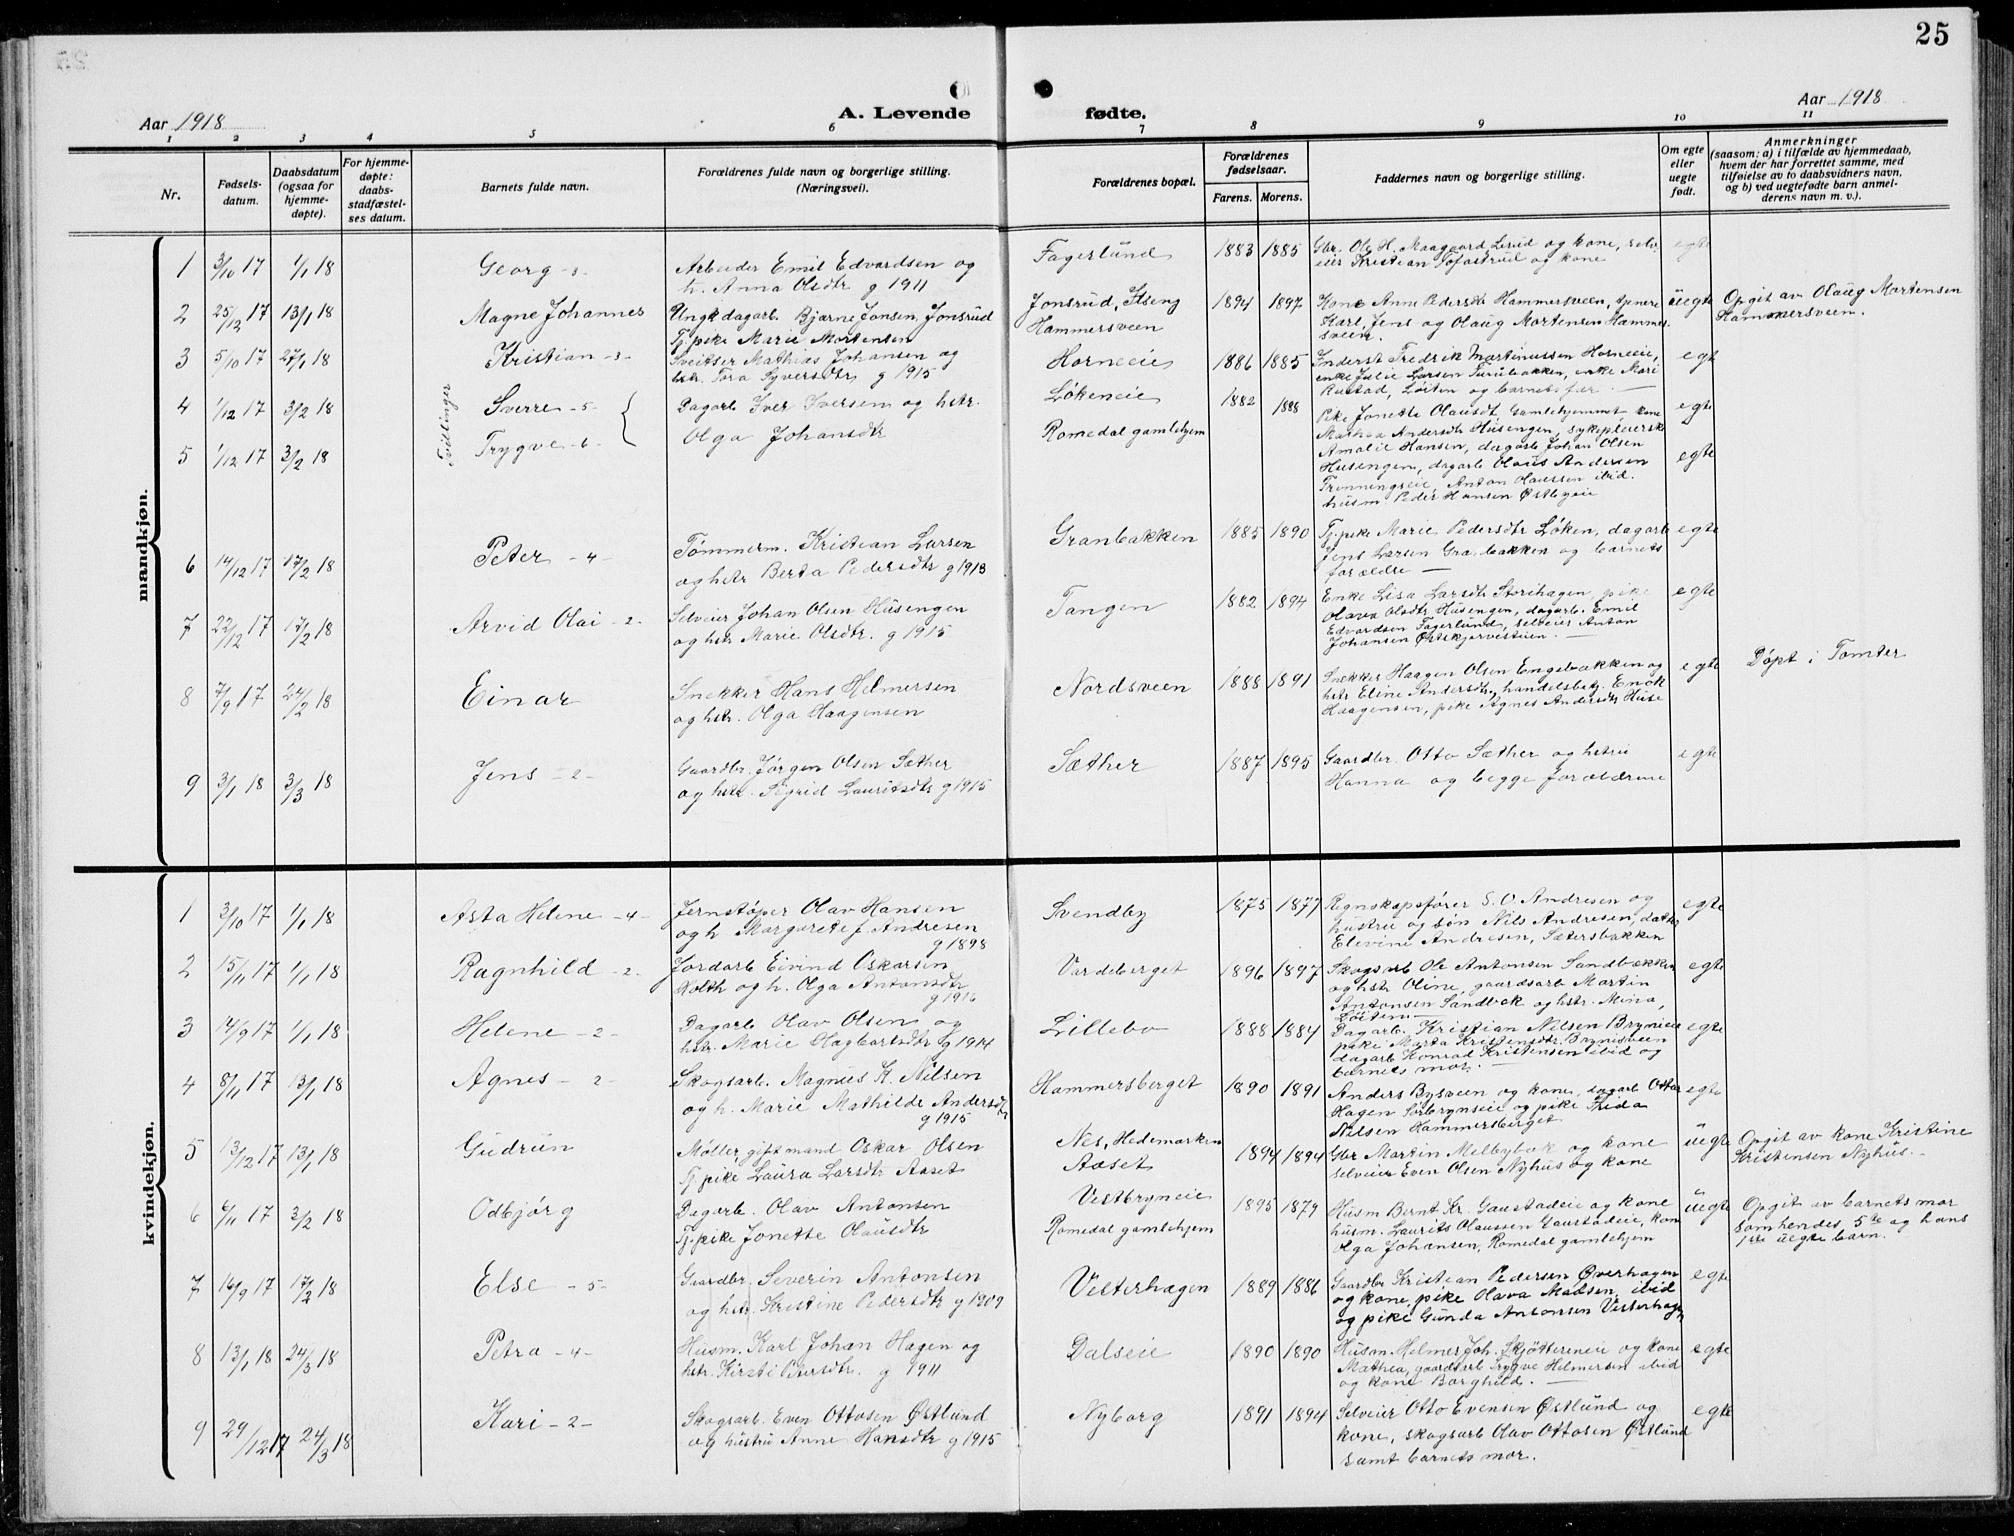 25
Aar 1918
A. Levende fødte.
Aar 1918
1 2 3 4 5 6 7 8 9 10 11
Nr.
Fødsels-
datum.
Daabsdatum
(ogsaa for
hjemme-
døpte).
For hjemme-
døpte:
daabs-
stadfæstel-
ses datum.
Barnets fulde navn.
Forældrenes fulde navn og borgerlige stilling.
(Næringsvei).
Forældrenes bopæl.
Forældrenes
fødselsaar.
Farens. Morens.
Faddernes navn og borgerlige stilling.
Om egte
eller
uegte
født.
Anmerkninger
(saasom: a) i tilfælde av hjemmedaab,
hvem der har forrettet samme, med
tilføielse av to daabsvidners navn,
og b) ved uegtefødte barn anmel-
derens navn m. v.).
mandkjøn.
1 3/10 17 1/1 18 Georg -3- Arbeider Emil Edvardsen og
h. Anna Olsdtr g 1911
Fagerlund 1883 1885
Gbr. Ole H. Maagaard, Lerud og kone, selv-
eier Kristian Tofastrud og kone
egte
2 25/12 17 13/1 18 Magne Johannes Ungk dagarb. Bjarne Jonsen, Jonsrud
Tj.pike Marie Mortensen
Jonsrud, Ilseng
Hammersveen
1894 1897
Kone Anne Pedersdtr Hammersveen,
Karl, Jens og Olaug Mortensen Hammer-
sveen.
uegte Opgit av Olaug Mortensen
Hammersveen.
3 5/10 17 27/1 18 Kristian -3- Sveitser Mathias Johansen og
hstr. Tora Syversdtr g 1915
Horneeie 1886 1885
Inderst Fredrik Martinussen Horneeie,
enke Julie Larsen Furubakken, enke Mari
Rustad, Løiten og barnets far.
egte
Tvillinger
4 1/12 17 3/2 18 Sverre -5- Dagarb Iver Iversen og hstr.
Olga Johansdtr
Løkeneie 1882 1888
Romedal gamlehjem
5 1/12 17 3/2 18 Trygve -6-
Pike Jonette Olausdt Gamlehjemmet kone
Mathea Andersdt Husengen, sykepleiersk
Amalie Hansen, dagarb Johan Olsen
Husengen, dagarb Olaus Andersen
Trønningseie, Anton Olaussen ibid.
husm Peder Hansen Østbyeie
egte
egte
6 14/12 17 17/2 18 Peter -4- Tømmerm. Kristian Larsen
og hstr Berta Pedersdtr g 1913
Granbakken 1885 1890
Tj.pike Marie Pedersdtr Løken, dagarb
Jens Larsen Granbakken og barnets
forældre
egte
7 22/12 17 17/2 18 Arvid Olai -2- Selveier Johan Olsen Husengen
og hstr Marie Olsdtr. g 1915
Tangen 1882 1894
Enke Lisa Larsdtr Storihagen, pike
Olava Olsdtr Husengen, dagarb. Emil
Edvardsen Fagerlund, selveier Anton
Johansen Østskjervestuen.
egte
8 7/9 17 24/2 18 Einar Snekker Hans Helmersen
og hstr. Olga Haagensen
Nordsveen 1888 1891
Snekker Haagen Olsen Engebakken og
hstr Eline Andersdtr, handelsbetj. Enok
Haagensen, pike Agnes Andersdtr Huse
egte Døpt i Tomter
9 3/1 18 3/3 18 Jens -2- Gaardbr. Jørgen Olsen Sæther
og hstr. Sigrid Lauritsdtr g 1915
Sæther 1887 1895
Gaardbr. Otto Sæther og hstru
Hanna og begge forældrene
egte
kvindekjøn.
1 3/10 17 1/1 18 Asta Helene -4- Jernstøper Olav Hansen
og h Margarete f Andresen
g 1898
Svendby 1875 1877
Regnskapsfører S. O. Andresen og
hustru og søn Nils Andresen, datter
Elevine Andresen, Sætersbakken
egte
2 15/11 17 1/1 18 Ragnhild -2- Jordarb Eivind Oskarsen
Holth og h. Olga Antonsdtr
g 1916
Vardeberget 1896 1897
Skogsarb Ole Antonsen Sandbakken
og hstr Oline, gaardsarb Martin
Antonsen Sandbæk og hstr. Mina,
Løiten
egte
3 14/9 17 1/1 18 Helene -2- Dagarb Olav Olsen og
hstr. Marie Hagbartsdtr g 1914
Lillebo 1888 1884
Dagarb. Kristian Nilsen Bryneie
pike Marta Kristensdtr. Brynisveen
dagarb Konrad Kristensen ibid og
barnets mor.
egte
4 8/11 17 13/1 18 Agnes -2- Skogsarb. Magnus K. Nilsen
og h. Marie Mathilde Andersdtr
g 1915
Hammersberget 1890 1891
Anders Bysveen og kone, dagarb Ottar
Hagen Sørbryneie og pike Frida
Nilsen Hammersberget
egte
5 13/12 17 13/1 18 Gudrun Møller, gift mand Oskar Olsen
Tj.pike Laura Larsdtr Aaset
Nes, Hedemarken
Aaset
1894 1894
Gbr Martin Melbybæk og kone
selveier Even Olsen Nyhus og kone
uegte Opgit av kone Kristine
Kristensen Nyhus.
6 6/11 17 3/2 18 Odbjørg Dagarb. Olav Antonsen
Tj.pike Jonette Olausdtr
Vestbryneie
Romedal gamlehjem
1895 1879
Husm Bernt Kr. Gaustadeie og kone
husm. Laurits Olaussen Gaustadeie, kone
Olga Johansen, Romedal gamlehjem
uegte Opgit av barnets mor
som hendes 5te og hans
1ste uegte barn.
7 16/9 17 17/2 18 Else -5- Gaardbr. Severin Antonsen
og hstr. Kristine Pedersdtr g 1909
Vesterhagen 1889 1886
Gaardbr Kristian Pedersen Øverhagen
og kone, pike Olava Madsen, ibid
og pike Gunda Antonsen Vesterhagen
egte
8 13/1 18 24/3 18 Petra -4- Husm. Karl Johan Hagen og
hstr. Kirsti Persdtr. g 1911
Dalseie 1890 1890
Husm Helmer Joh. Skjøttereneie og kone
Mathea, gaardsarb Trygve Helmersen ibid
og kone Borghild.
egte
9 29/12 17 24/3 18 Kari -2- Skogsarb. Even Ottosen Østlund
og hustru Anne Hansdtr g 1915
Nyborg 1891 1894
Selveier Otto Evensen Østlund og
kone, skogsarb Olav Ottosen Østlund
samt barnets mor.
egte